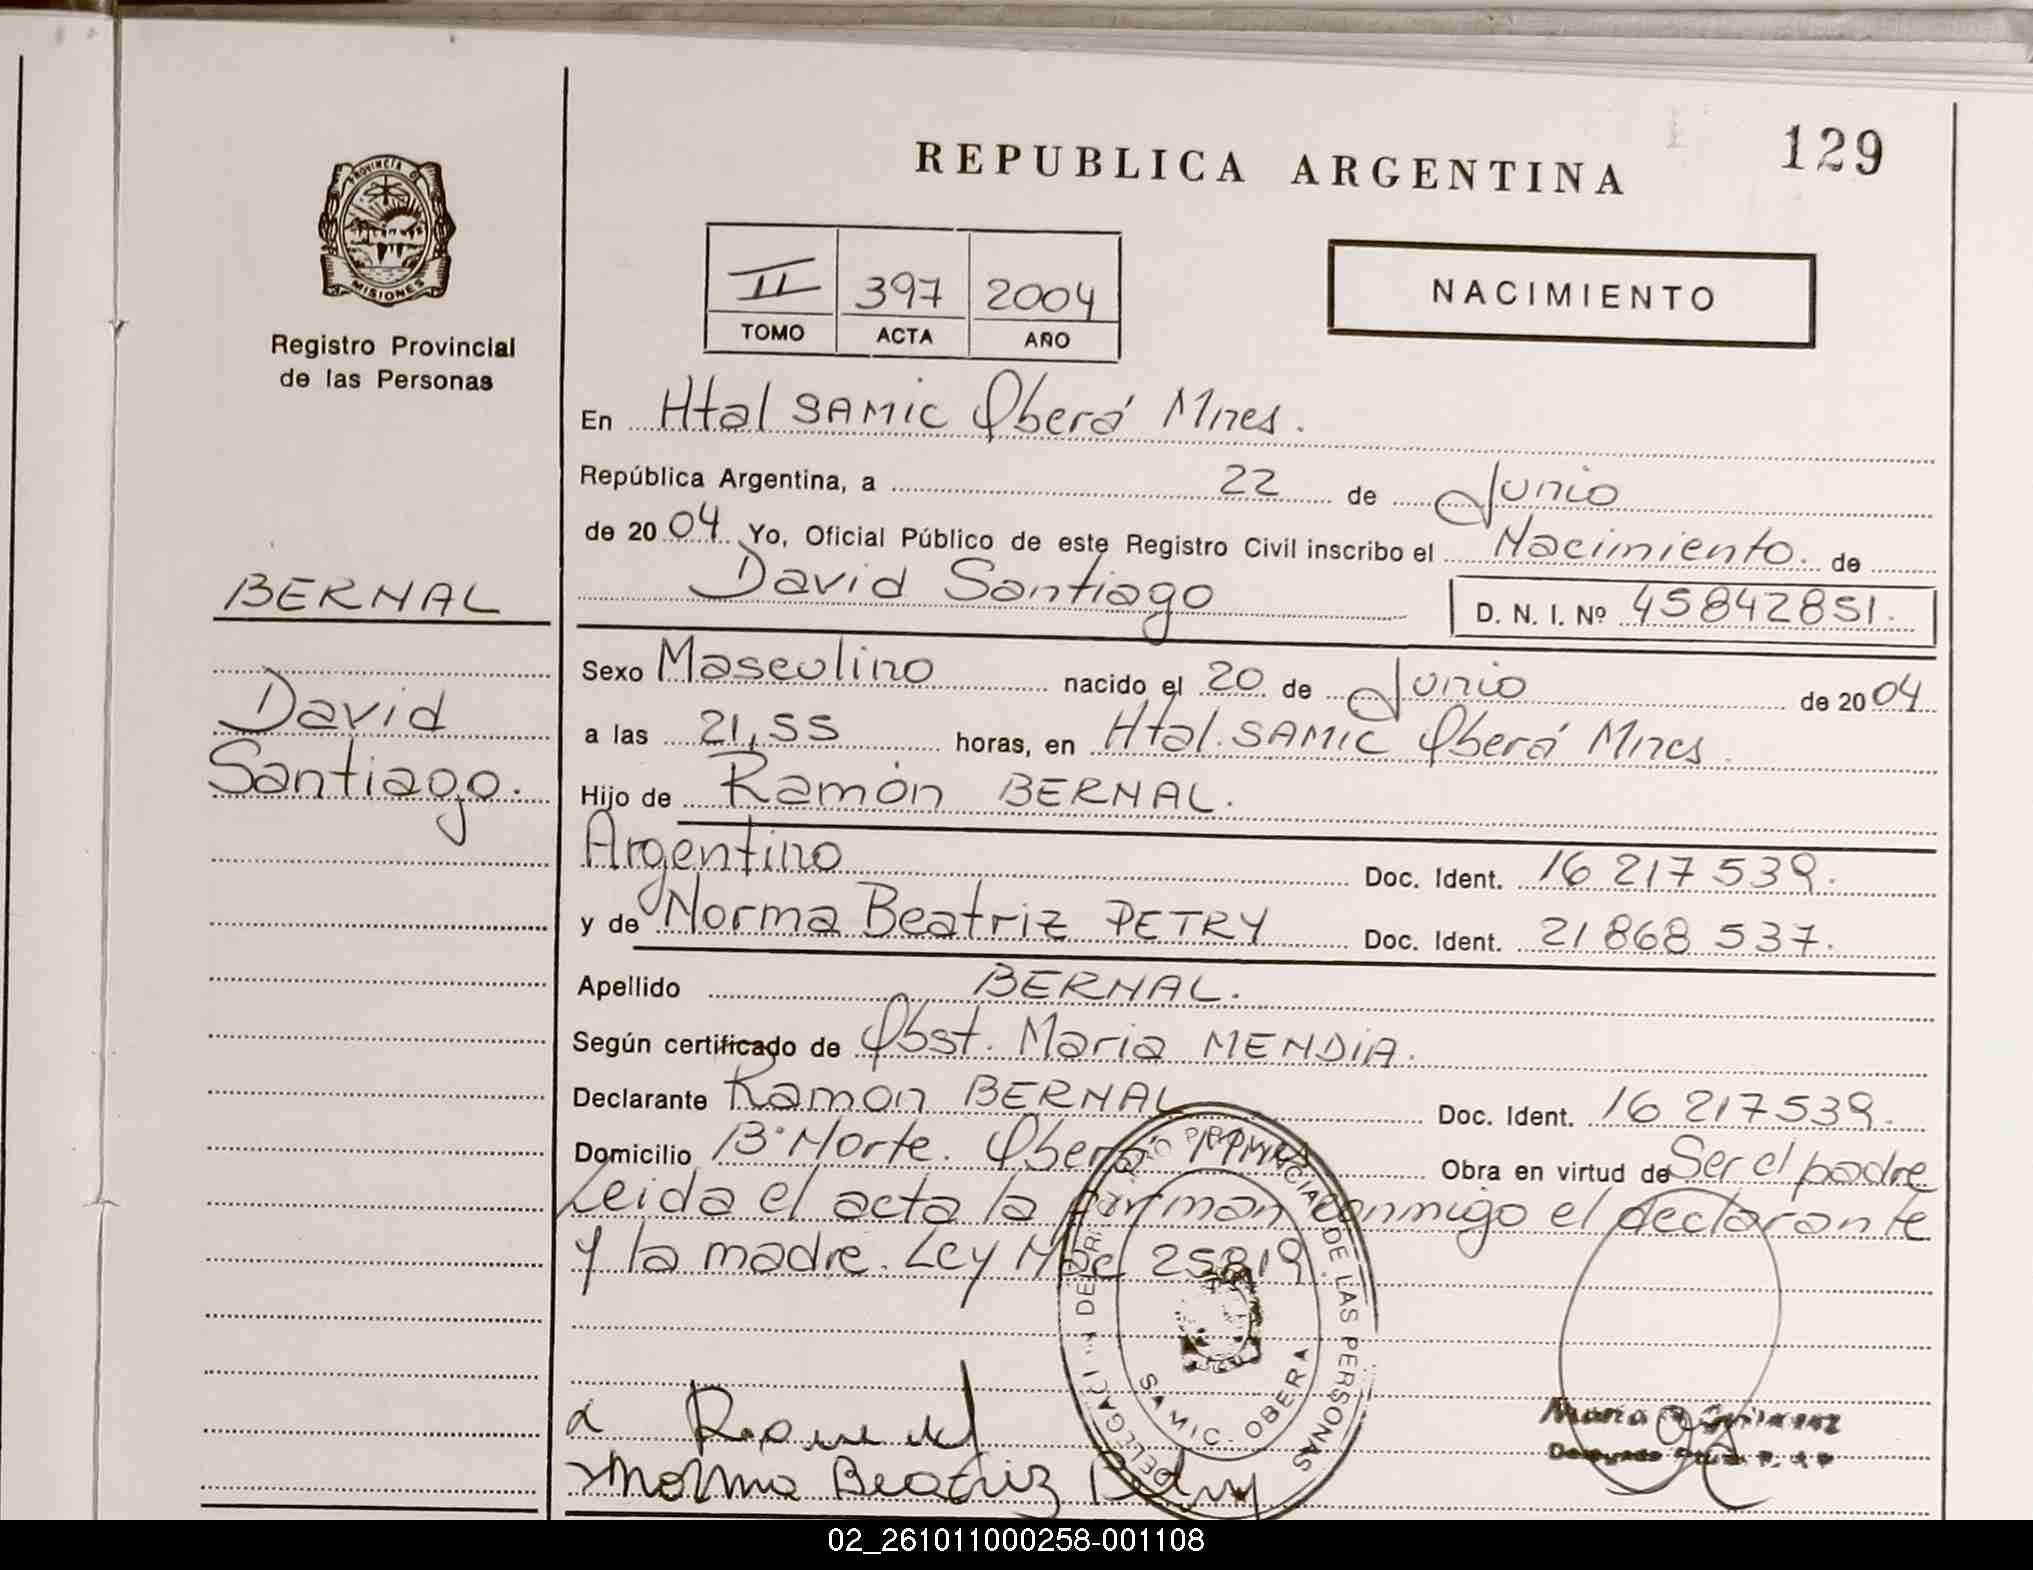 129
REPUBLICA ARGENTINA
PROVINCIA D
MISIONES
Registro Provincial
de las Personas
II 397 2004
TOMO ACTA AÑO
NACIMIENTO
En Htal SAMIC Oberá Mnes.
República Argentina, a 22 de Junio
de 2004 Yo, Oficial Público de este Registro Civil inscribo el Nacimiento. de
David Santiago D. N. I. Nº 45842851.
BERNAL
David
Santiago.
Sexo Masculino nacido el 20 de Junio de 2004
a las 21,55 horas, en Htal. SAMIC Oberá Mnes.
Hijo de Ramón BERNAL.
Argentino Doc. Ident. 16 217 539.
y de Norma Beatriz PETRY Doc. Ident. 21 868 537.
Apellido BERNAL.
Según certificado de Obst. Maria MENDIA.
Declarante Ramon BERNAL Doc. Ident. 16 217539.
Domicilio Bº Norte. Oberá Mnes Obra en virtud de Ser el padre
Leida el acta la firman conmigo el declarante
y la madre. Ley Nac 25819.
PROVINCIAL DE LAS PERSONAS
SAMIC - OBERA
Norma Beatriz
Maria
02_261011000258-001108